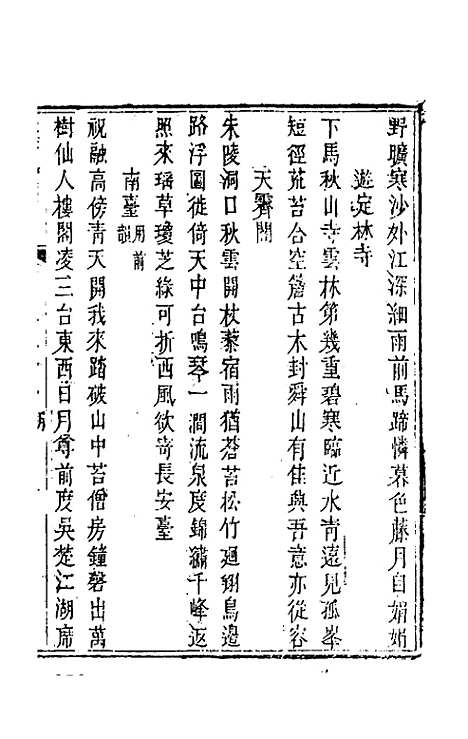 野曠寒沙外江深細雨前馬蹄憐暮色藤月自娟娟
遊定林寺
下馬秋山寺雲林第幾重碧寒臨近水青遠見孤峯
短徑荒苔合空簷古木封舜山有佳興吾意亦從容
天霽閣
朱陵洞口秋雲開杖藜宿雨猶蒼苔松竹廻翔鳥邊
路浮圖徙倚天中台鳴琴一澗流泉度錦繡千峰返
照來瑤草瓊芝綠可折西風欲寄長安臺
南臺用前韻
祝融高傍靑天開我來踏破山中苔僧房鐘磬出萬
樹仙人樓閣凌三台東西日月尊前度吳楚江湖席